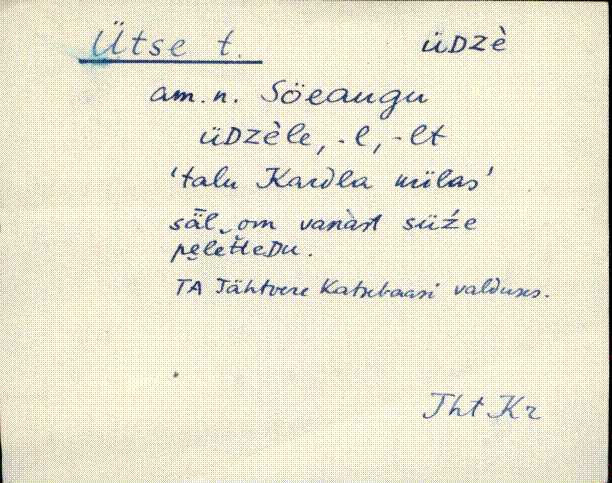 Ütse t. üDZè
am. n. Söeaugu
üDZèle, -l, -lt
'talu Kardla külas'
säl om vanàst süźe
peletteDu.
TA Tähtvere Katsebaasi valduses.
Tht Kr